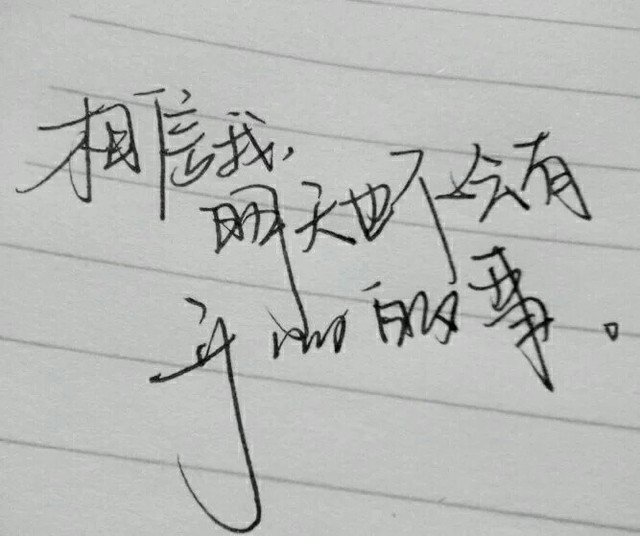 相信我，
明天也不会有
开心的事。